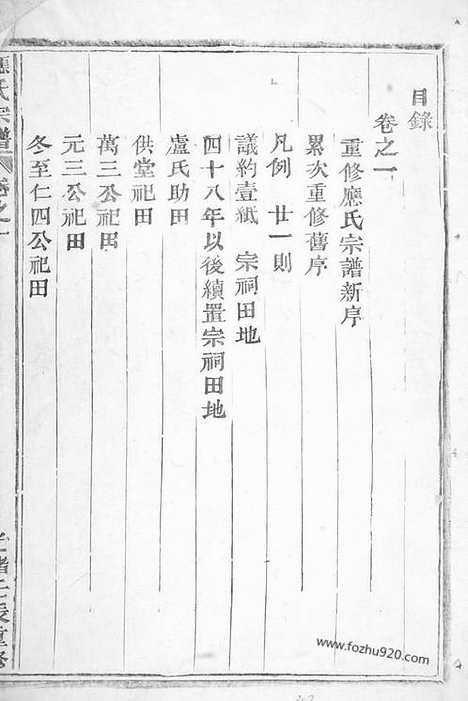 目錄
卷之一
重修應氏宗譜新序
累次重修舊序
凡例 廿一則
議約壹紙 宗祠田地
四十八年以後續置宗祠田地
盧氏助田
供堂祀田
萬三公祀田
元三公祀田
冬至仁四公祀田
應氏宗譜 卷之一
www.fozhu920.com